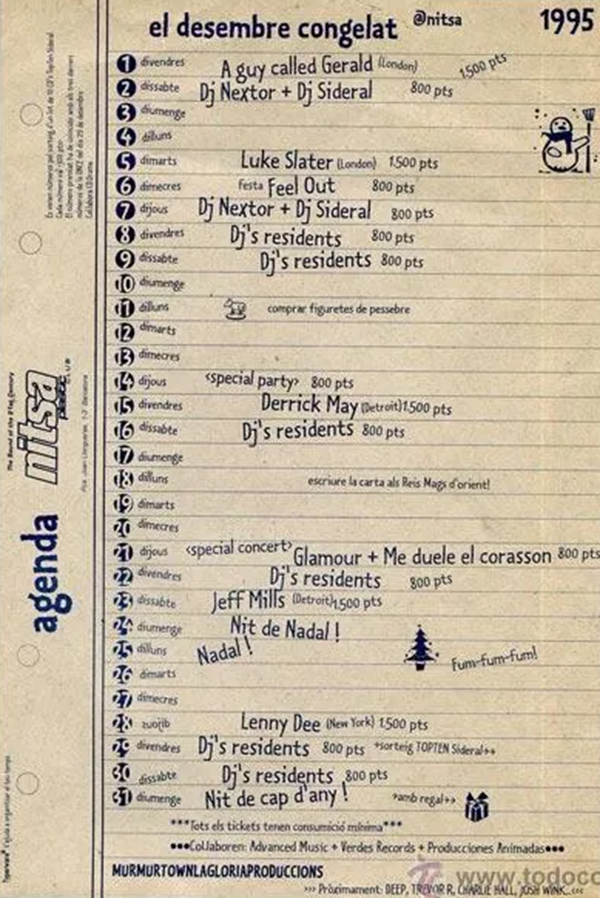 el desembre congelat @nitsa 1995
1 divendres A guy called Gerald (London) 1.500 pts
2 dissabte Dj Nextor + Dj Sideral 800 pts
3 diumenge
4 dilluns
5 dimarts Luke Slater (London) 1.500 pts
6 dimecres festa Feel Out 800 pts
7 dijous Dj Nextor + Dj Sideral 800 pts
8 divendres Dj's residents 800 pts
9 dissabte Dj's residents 800 pts
10 diumenge
11 dilluns comprar figuretes de pessebre
12 dimarts
13 dimecres
14 dijous <special party> 800 pts
15 divendres Derrick May (Detroit) 1.500 pts
16 dissabte Dj's residents 800 pts
17 diumenge
18 dilluns escriure la carta als Reis Mags d'orient!
19 dimarts
20 dimecres
21 dijous <special concert> Glamour + Me duele el corasson 800 pts
22 divendres Dj's residents 800 pts
23 dissabte Jeff Mills (Detroit) 1.500 pts
24 diumenge Nit de Nadal!
25 dilluns Nadal! Fum-fum-fum!
26 dimarts
27 dimecres
28 Lenny Dee (New York) 1.500 pts
29 divendres Dj's residents 800 pts *sorteig TOPTEN Sideral**
30 dissabte Dj's residents 800 pts
31 diumenge Nit de cap d'any! *amb regal**
***Tots els tickets tenen consumició mínima***
•••Col.laboren: Advanced Music + Verdes Records + Producciones Animadas•••
MURMURTOWNLAGLORIAPRODUCCIONS
>>> Pròximament: DEEP, TREVOR R, CHARLIE HALL, JOSH WINK...<<<
www.todoco
agenda
nitsa
CLUB
The Sound of the 21sq Century